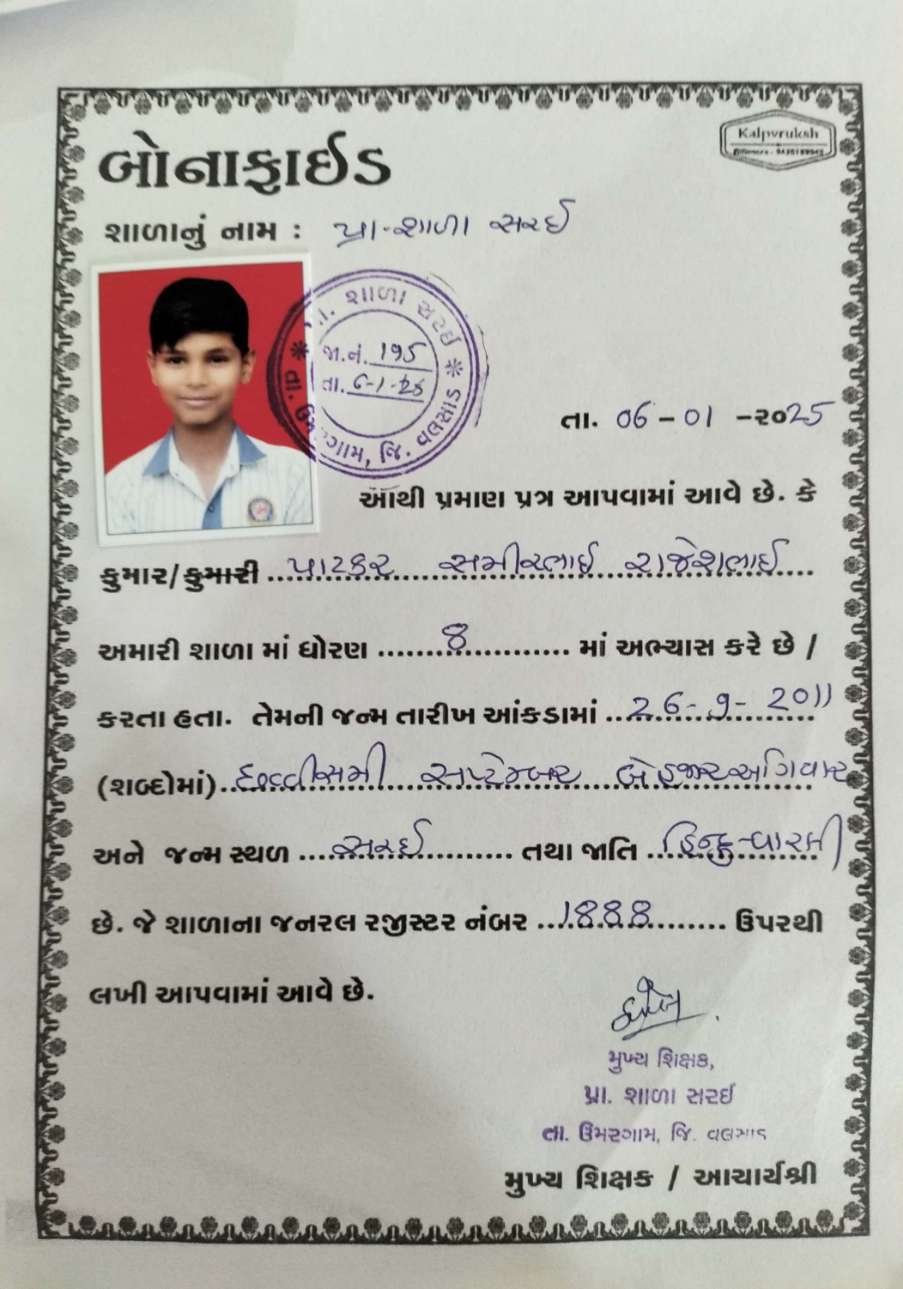 Kalpvruksh
બોનાફાઈડ
શાળાનું નામ : પ્રા-શાળા સરઈ
પ્રા. શાળા સરઈ
જા.નં. 195
તા. 6-1-25
તા. ઉમરગામ, જિ. વલસાડ
તા. 06-01-૨૦25
આથી પ્રમાણ પત્ર આપવામાં આવે છે. કે
કુમાર/કુમારી પાટકર સમીરભાઈ રાજેશભાઈ
અમારી શાળા માં ધોરણ 8 માં અભ્યાસ કરે છે /
કરતા હતા. તેમની જન્મ તારીખ આંકડામાં 26-9-2011
(શબ્દોમાં) છવ્વીસમી સપ્ટેમ્બર બેહજારઅગિયાર
અને જન્મ સ્થળ સરઈ તથા જાતિ હિન્દુ-વારલી
છે. જે શાળાના જનરલ રજીસ્ટર નંબર 1888 ઉપરથી
લખી આપવામાં આવે છે.
મુખ્ય શિક્ષક,
પ્રા. શાળા સરઈ
તા. ઉમરગામ, જિ. વલસાડ
મુખ્ય શિક્ષક / આચાર્યશ્રી